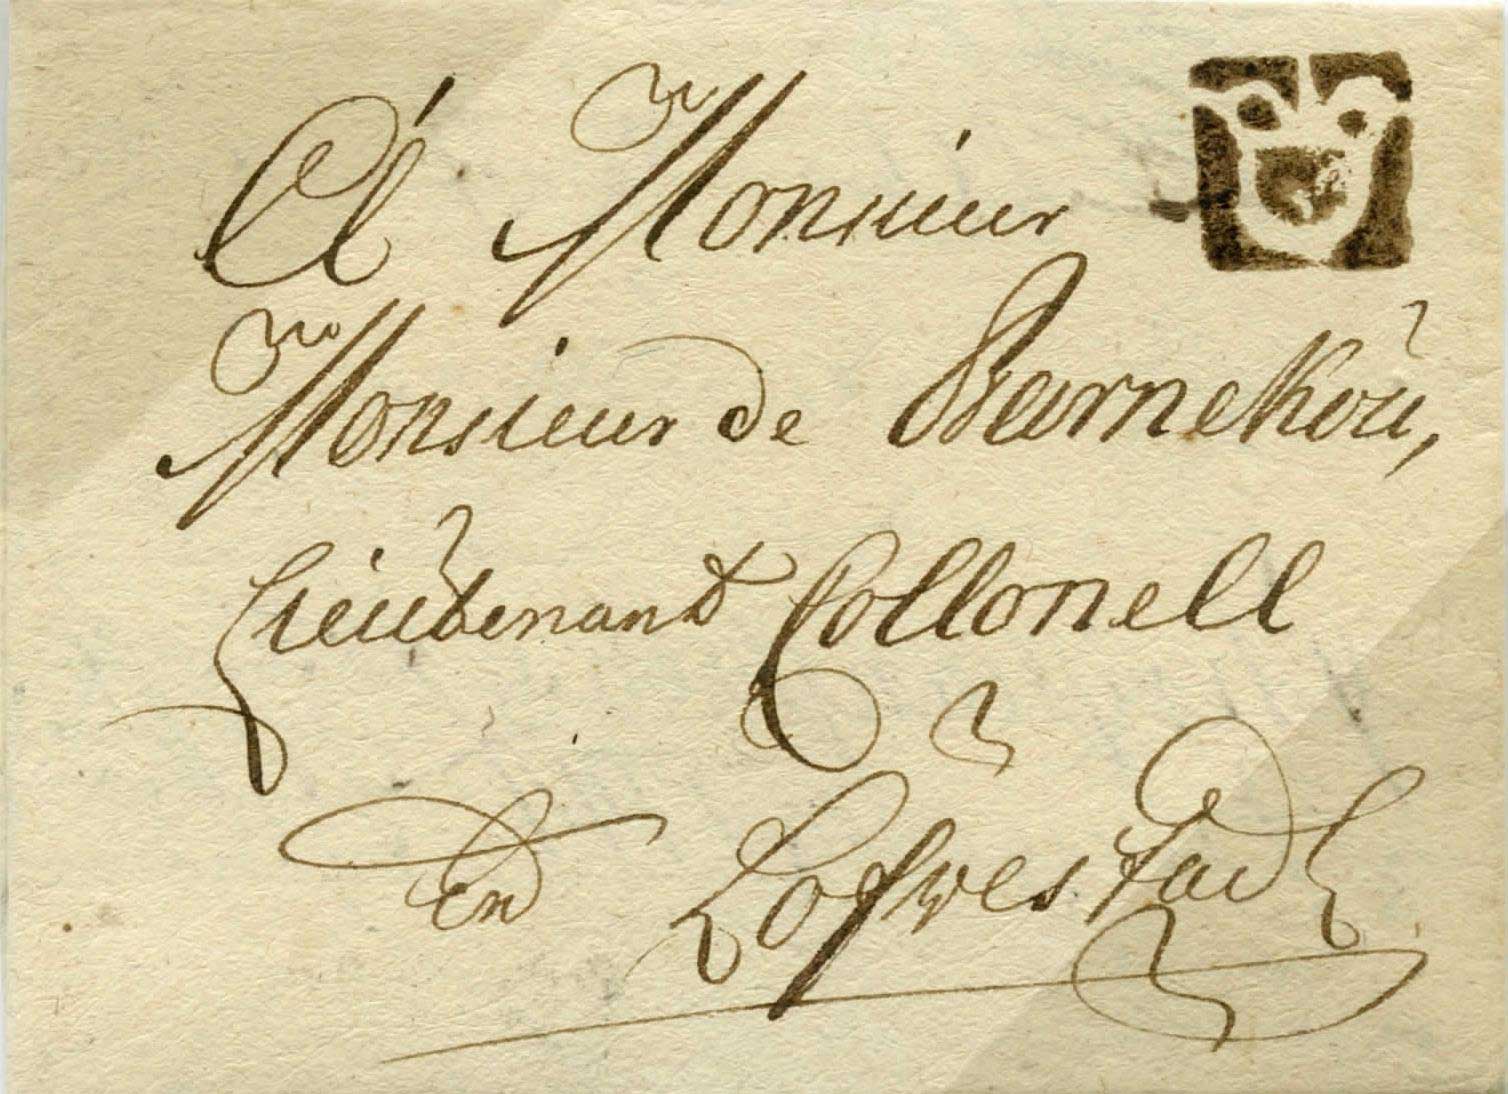 A Monsieur
Monsieur de Barnekoù,
Lieùtenant Collonell
en
Löfwestad